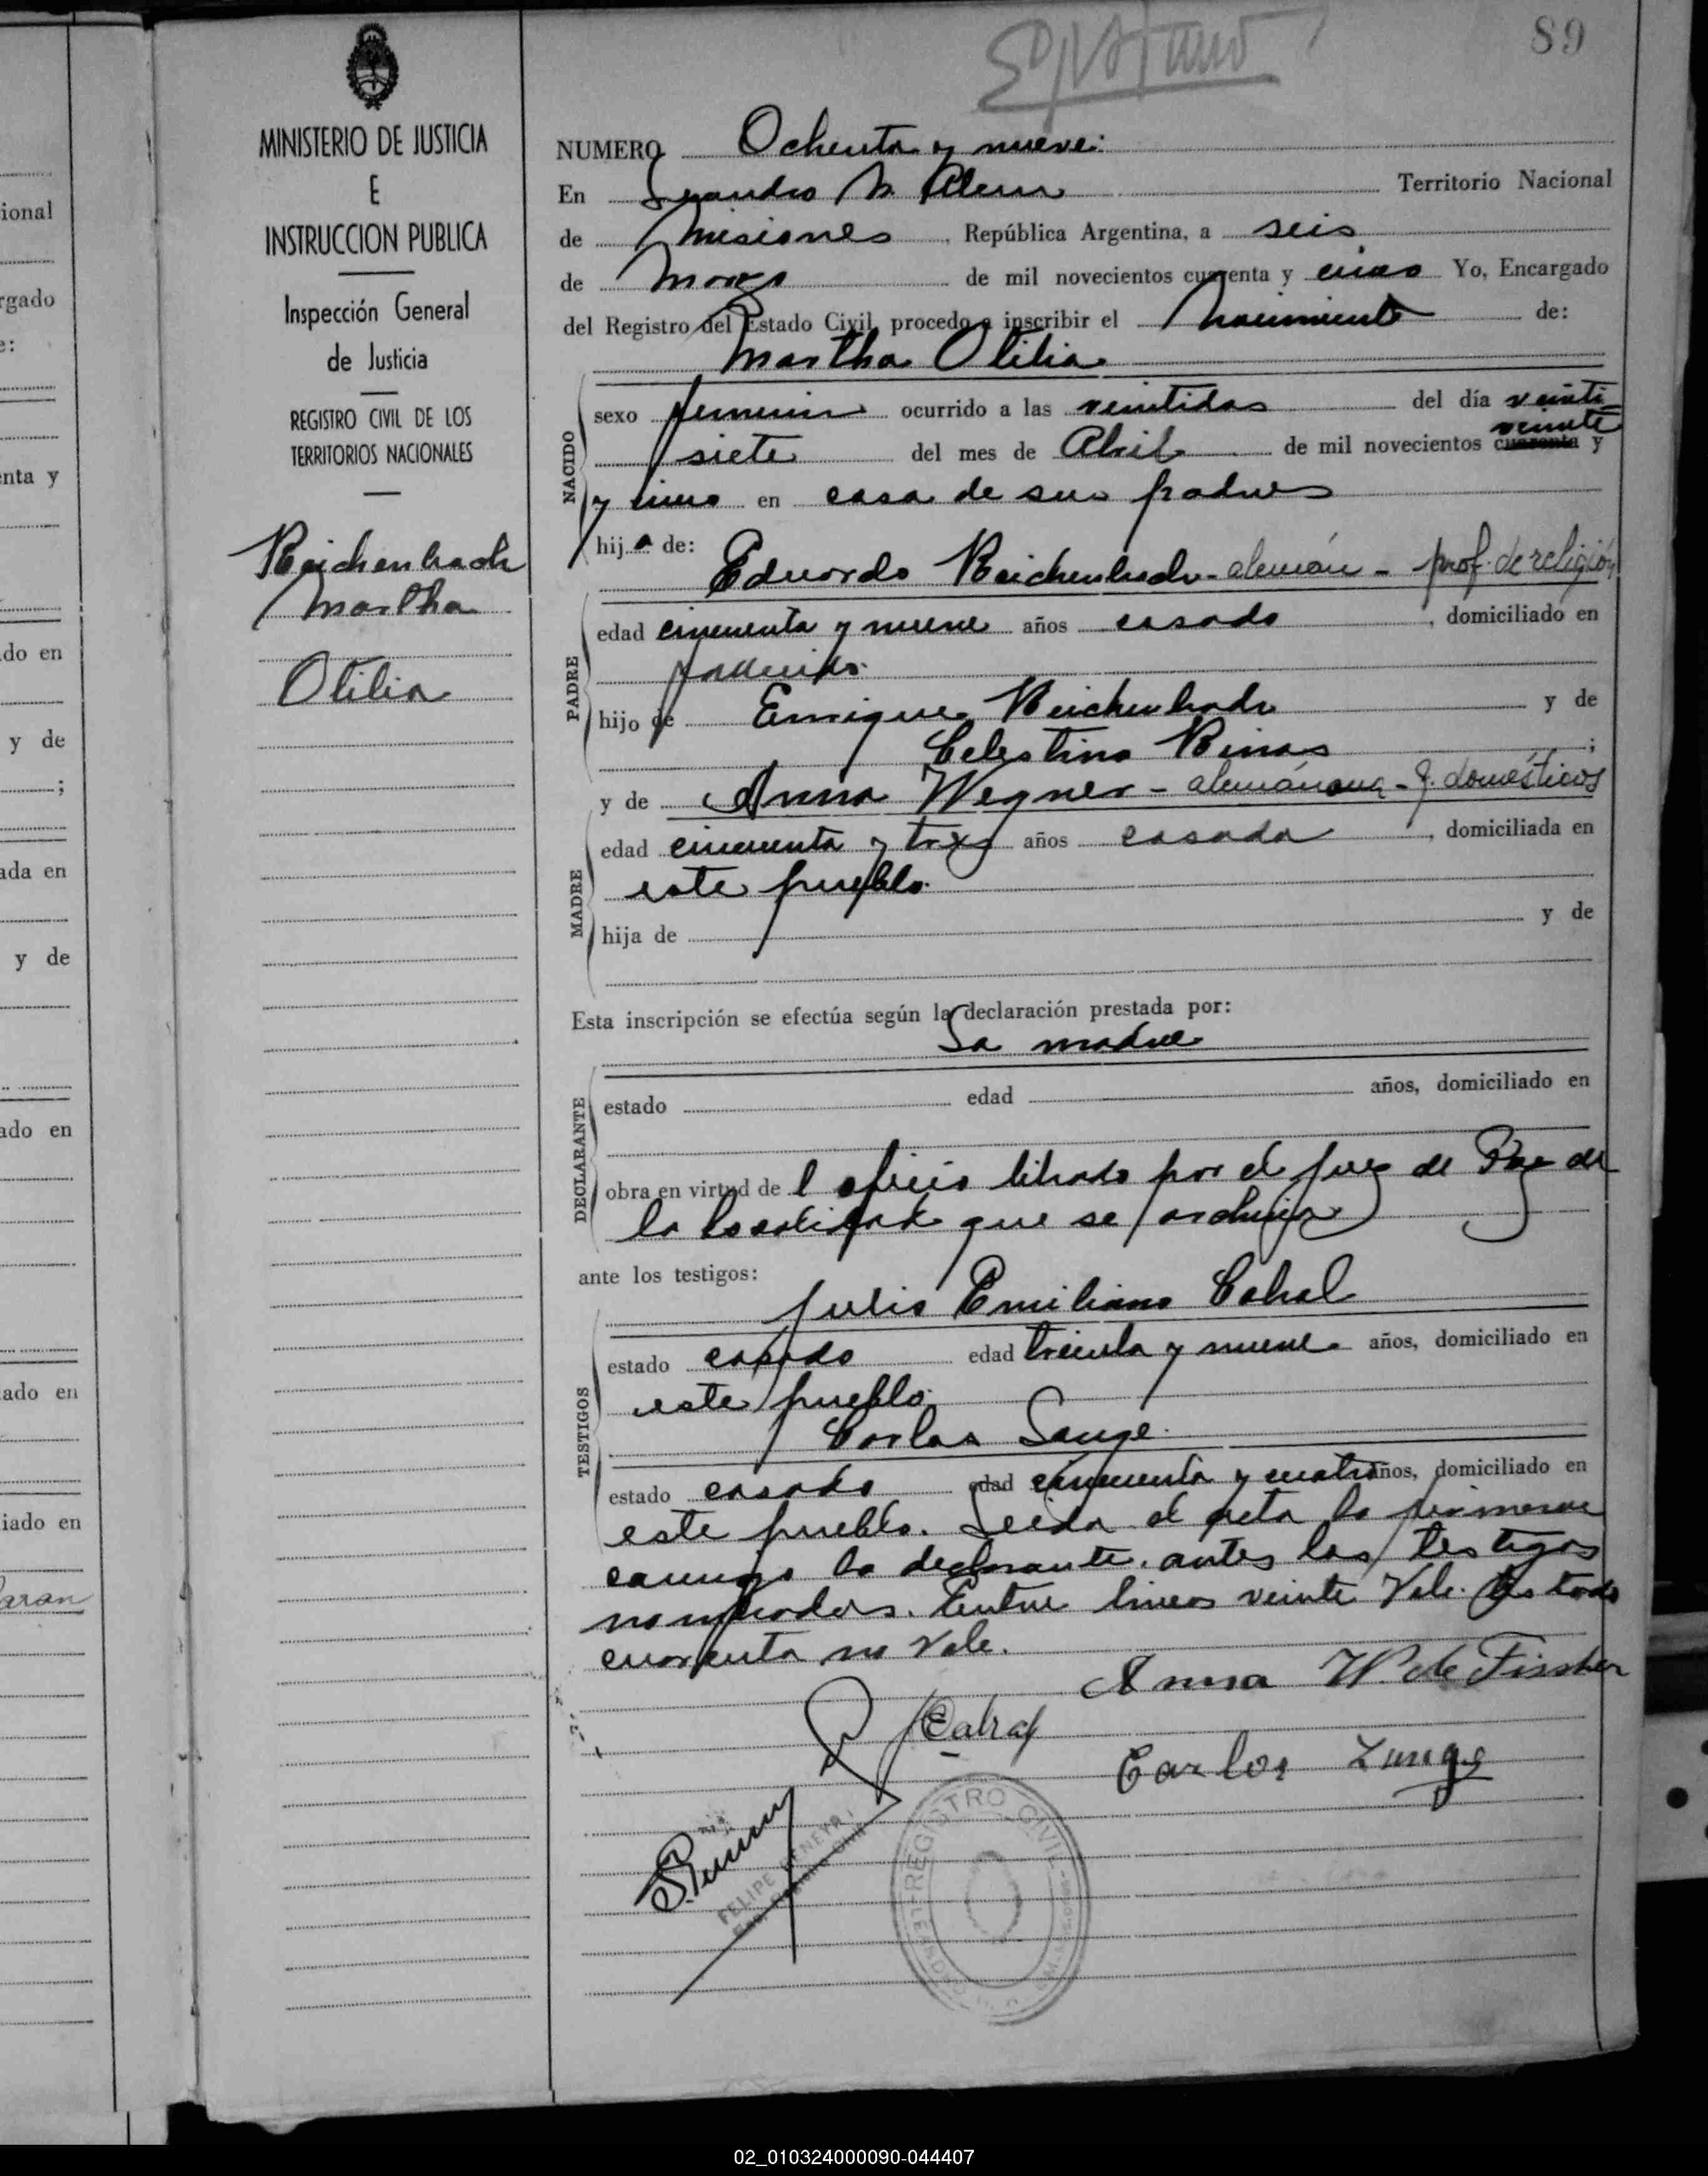 89
MINISTERIO DE JUSTICIA
E
INSTRUCCION PUBLICA
Inspección General
de Justicia
REGISTRO CIVIL DE LOS
TERRITORIOS NACIONALES
Reichenbach
Martha
Otilia
NUMERO Ochenta y nueve:
En Leandro N. Alem Territorio Nacional
de Misiones, República Argentina, a seis
de Marzo de mil novecientos cuarenta y cinco Yo, Encargado
del Registro del Estado Civil, procedo a inscribir el Nacimiento de:
Martha Otilia
NACIDO
sexo femenin ocurrido a las veintidos del día veinti
siete del mes de Abril de mil novecientos cuarenta y
veinte
y cinco en casa de sus padres
hija de:
Eduardo Reichenbach - alemán - prof. de religión
PADRE
edad cincuenta y nueve años casado, domiciliado en
hijo de Enrique Reichenbach y de
Celestina Binas;
y de Anna Wegner - alemána - q. domésticos
MADRE
edad cincuenta y tres años casada, domiciliada en
este pueblo.
hija de y de
Esta inscripción se efectúa según la declaración prestada por:
La madre
DECLARANTE
estado edad años, domiciliado en
obra en virtud de l oficio librado por el Juez de Paz de
la localidad que se archiva
ante los testigos:
Julio Emiliano Cabral
TESTIGOS
estado casado edad treinta y nueve años, domiciliado en
este pueblo.
Carlos Lange.
estado casado edad cincuenta y cuatro años, domiciliado en
este pueblo. Leida el acta la firmaron
conmigo la declarante. antes los testigos
nombrados. Entre lineas veinte Vale. Testado
cuarenta no Vale.
Anna W. de Fissher
Cabral
Carlos Lange
FELIPE
REGISTRO CIVIL
02_010324000090-044407